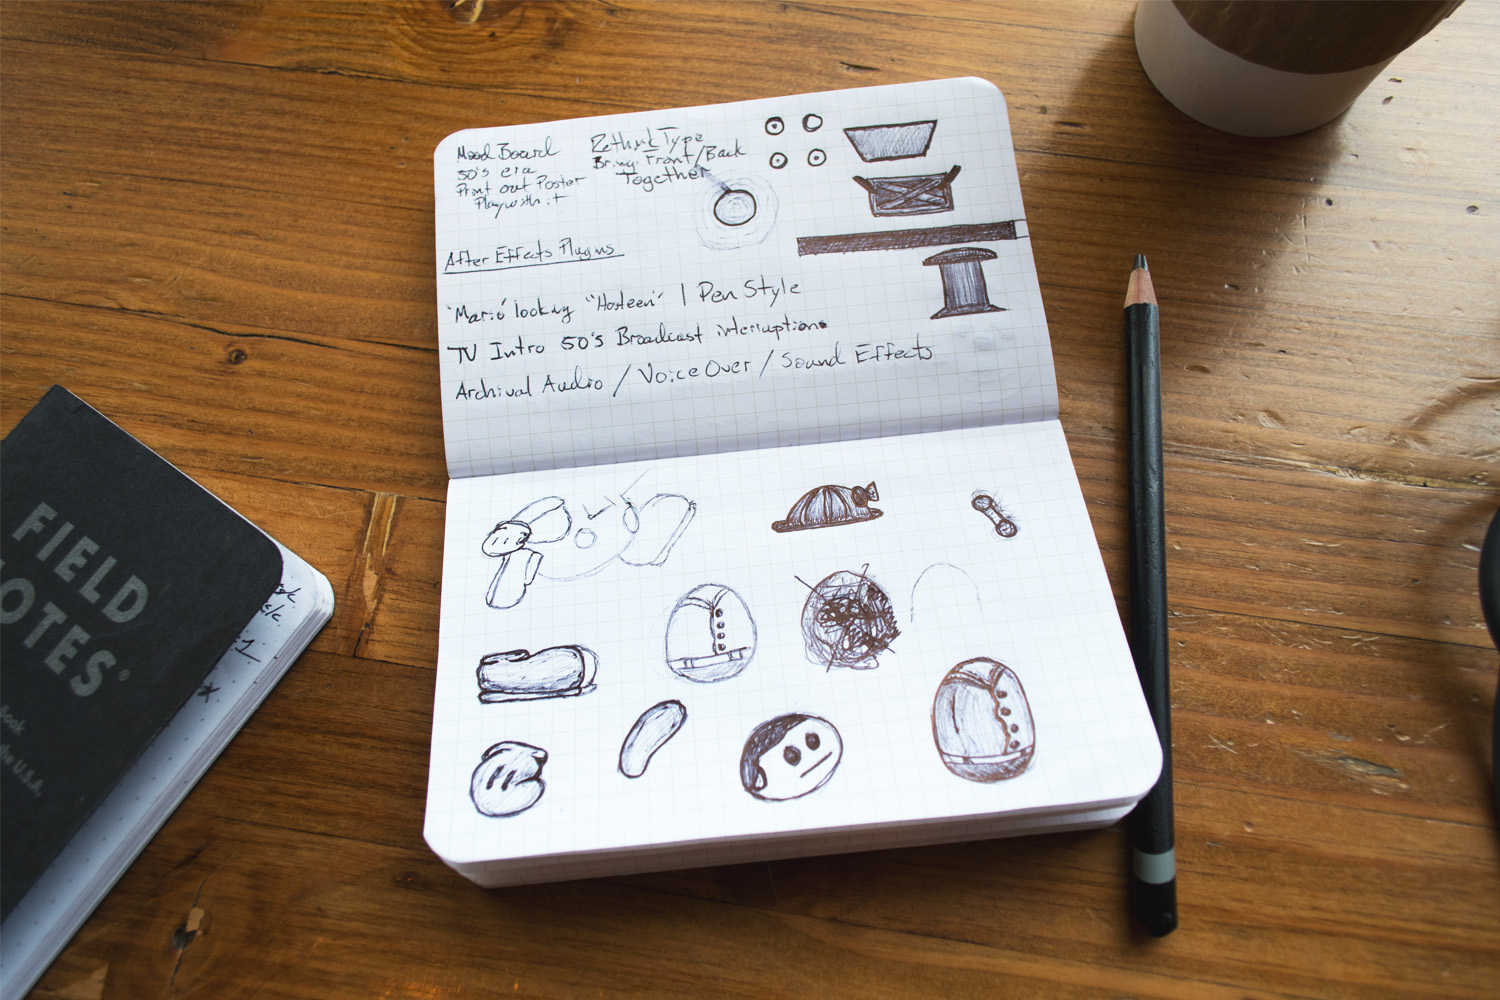 Mood Board
50's era
Print out Poster
Play with it
Rethink Type
Bring Front/Back
Together
After Effects Plugins
"Mario" looking "Hosteen" | Pen Style
TV Intro 50's Broadcast interruptions
Archival Audio / Voice Over / Sound Effects
FIELD
NOTES®
Book
the U.S.A.